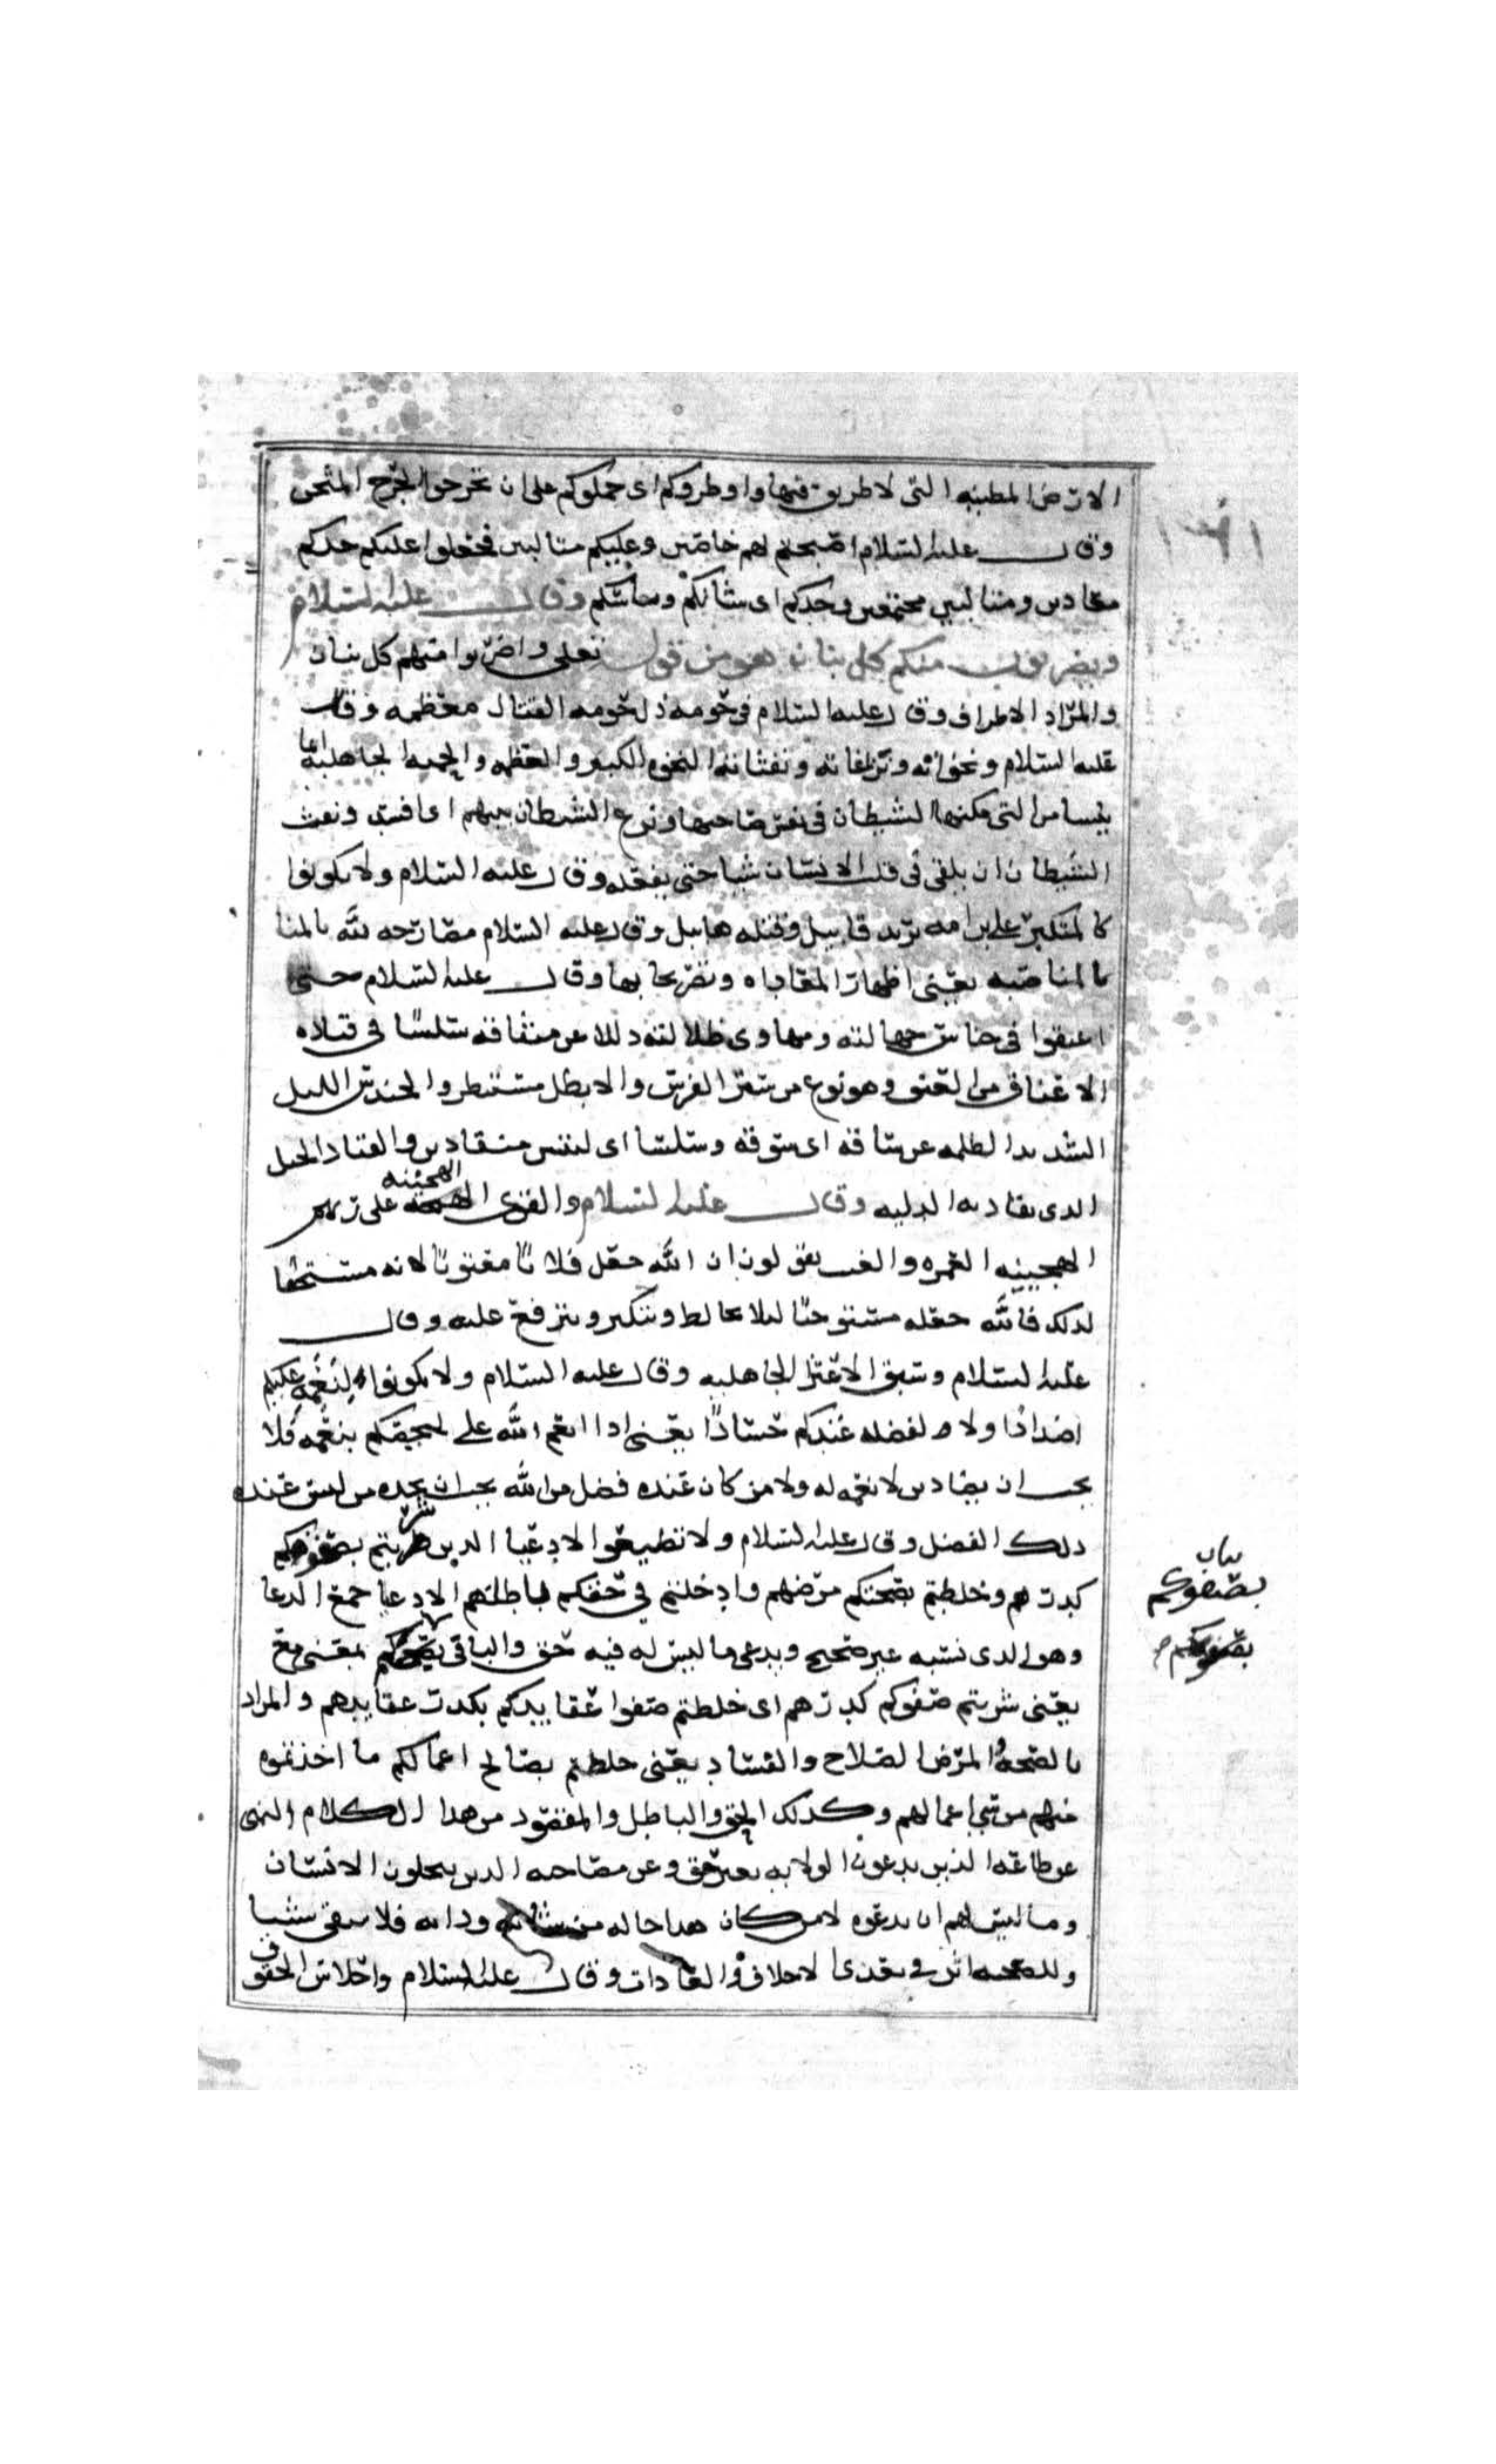 الارض المطينه التى لا طريق فيها واوطروكم اى حملوكم على ان تخرجوا الجرح المثخن
وقال عليه السلام اصبحتم لهم خاصين وعليكم متالبين فجعلوا عليكم حدكم
معادين ومتالبين مجتمعين وحدكم اى شانكم وباسكم وقال عليه السلام
ويضربون منكم كل بنان هو من قول تعلى واضربوا منهم كل بنان
والمراد الاطراف وقال عليه السلام في حومه ذل حومه القتال معظمه وقال
عليه السلام ونخواته ونزغاته ونفثاته النخوه الكبر والعظمه والحميه الجاهليه
التى مكنها الشيطان في نفس صاحبها ونزغ الشيطان بينهم اى افسد ونفث
الشيطان ان يلقى في قلب الانسان شيا حتى يفعله وقال عليه السلام ولا تكونوا
كالمتكبر على ابن امه يريد قابيل وقتله هابيل وقال عليه السلام مصارحه لله بالمنا
بالمناصبه يعنى اظهار المعاداه وتصريحا بها وقال عليه السلام حتى
اعنقوا في حنادس جهالته ومهاوى ظلالته ذللا عن سياقه سلسا في قياده
الاعناق من العنق وهو نوع من سير الفرس والابطل مستنطر والحندس الليل
الشديد الظلمه عن سياقه اى سوقه وسلسا اى لينين منقادين والقياد الحبل
الذى يقاد به الدابه وقال عليه السلام والقوى الهجينه على ربهم
الهجينه الغمره والعرب يقولون ان الله جعل فلانا مفتونا لانه مستحقا
لذلك فالله جعله مستوحشا ليلا يخالط وتتكبر وتترفع عليه وقال
عليه السلام وسيوف الاعتزا الجاهليه وقال عليه السلام ولا تكونوا لنعمه عليكم
اضدادا ولا لفضله عندكم حسادا يعنى اذا انعم الله على احدكم بنعمه فلا
يجب ان يضاد من لا نعمه له ولا من كان عنده فضل من الله يجب ان يحسده من ليس عنده
ذلك الفضل وقال عليه السلام ولا تطيعوا الادعيا الذين شربتم بصفوكم
كدرهم وخلطتم بصحتكم مرضهم وادخلتم في حقكم باطلهم الادعيا جمع الدعى
وهو الذى نسبه غير صحيح ويدعى ما ليس له فيه حق والباقى بصحتكم بمعنى مع
يعنى شربتم صفوكم كدرهم اى خلطتم صفوا عقايدكم بكدر عقايدهم والمراد
بالصحه والمرض الصلاح والفساد يعنى خلطتم بصالح اعمالكم ما اخذتموه
منهم من سيئ اعمالهم وكذلك الحق والباطل والمقصود من هذا الكلام النهى
عن طاعه الذين يدعون الولايه بغير حق وعن مصاحبه الذين يحلون الانسان
وما ليس لهم ان يدعوه لان من كان هذا حاله من شانه ودابه فلا يبقى شيا
وللصحبه اثر في تعدى الاخلاق والعادات وقال عليه السلام واحلاس العقوق
بيان
بصفوكم
بصفوكم